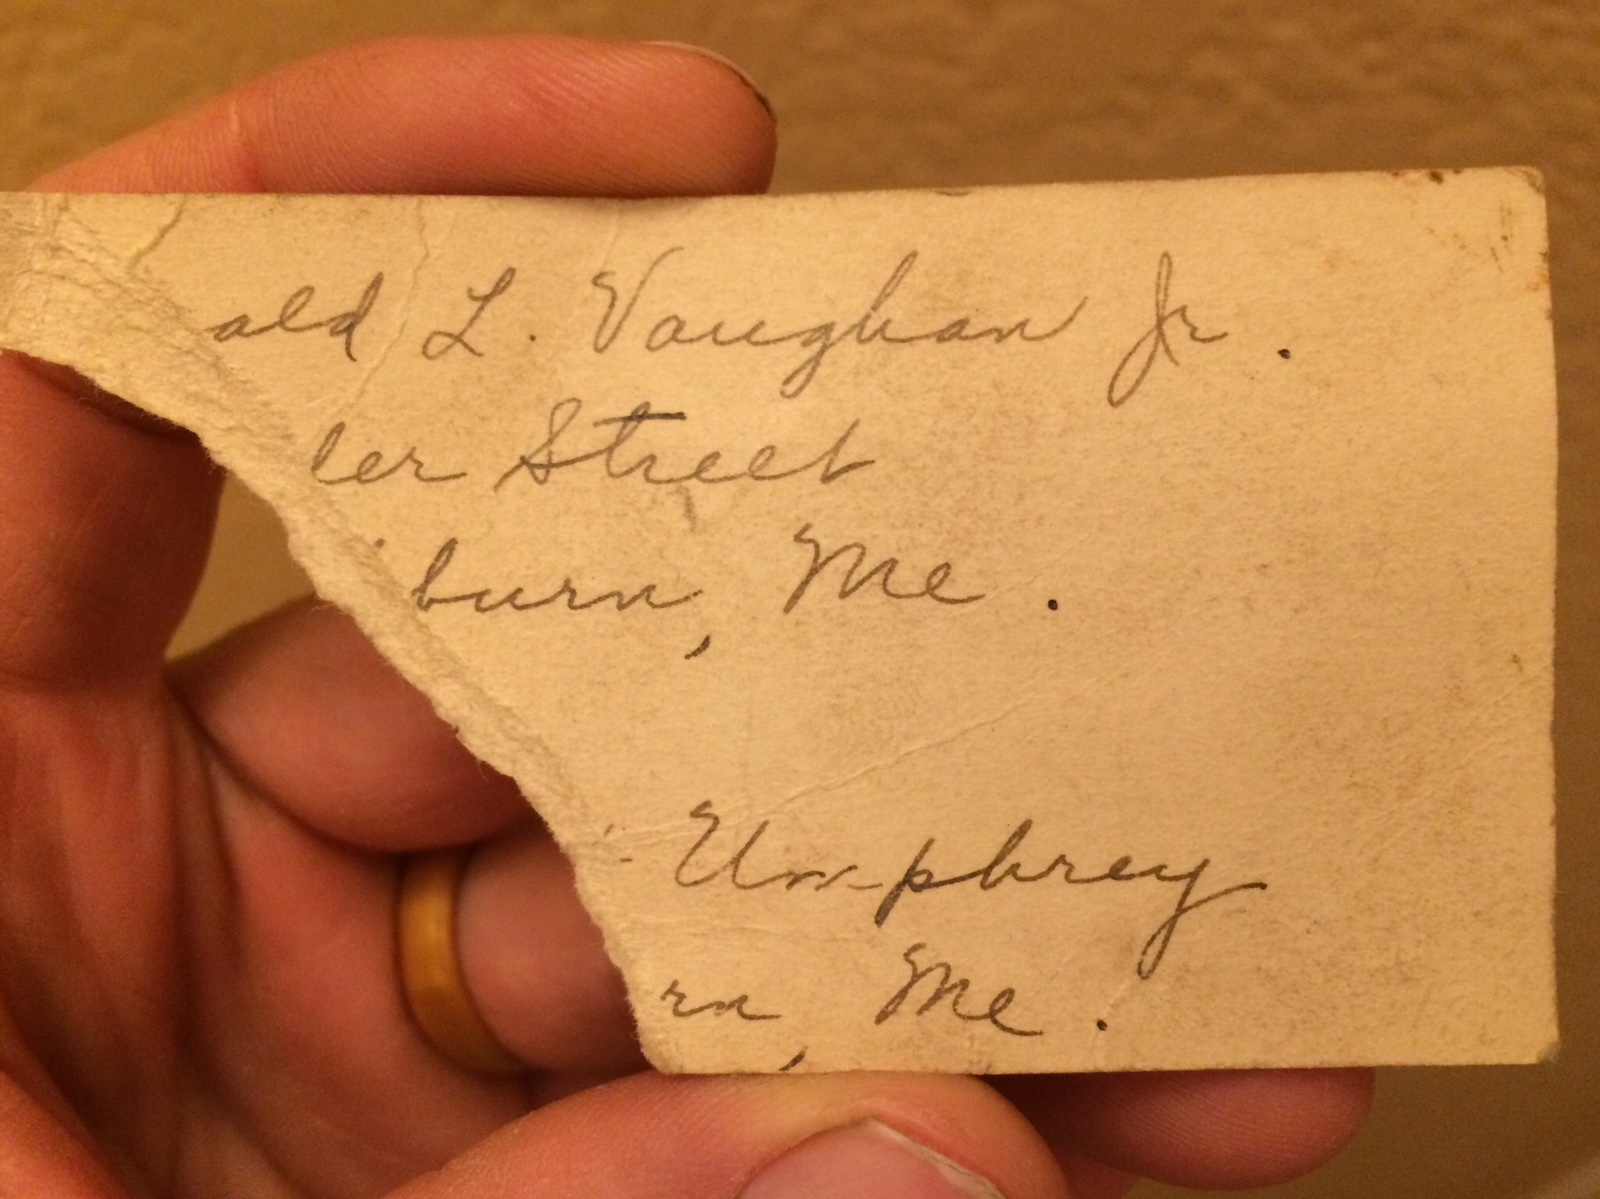 ald L. Vaughan Jr.
ler Street
burn, Me.
Umphrey
rn, Me.